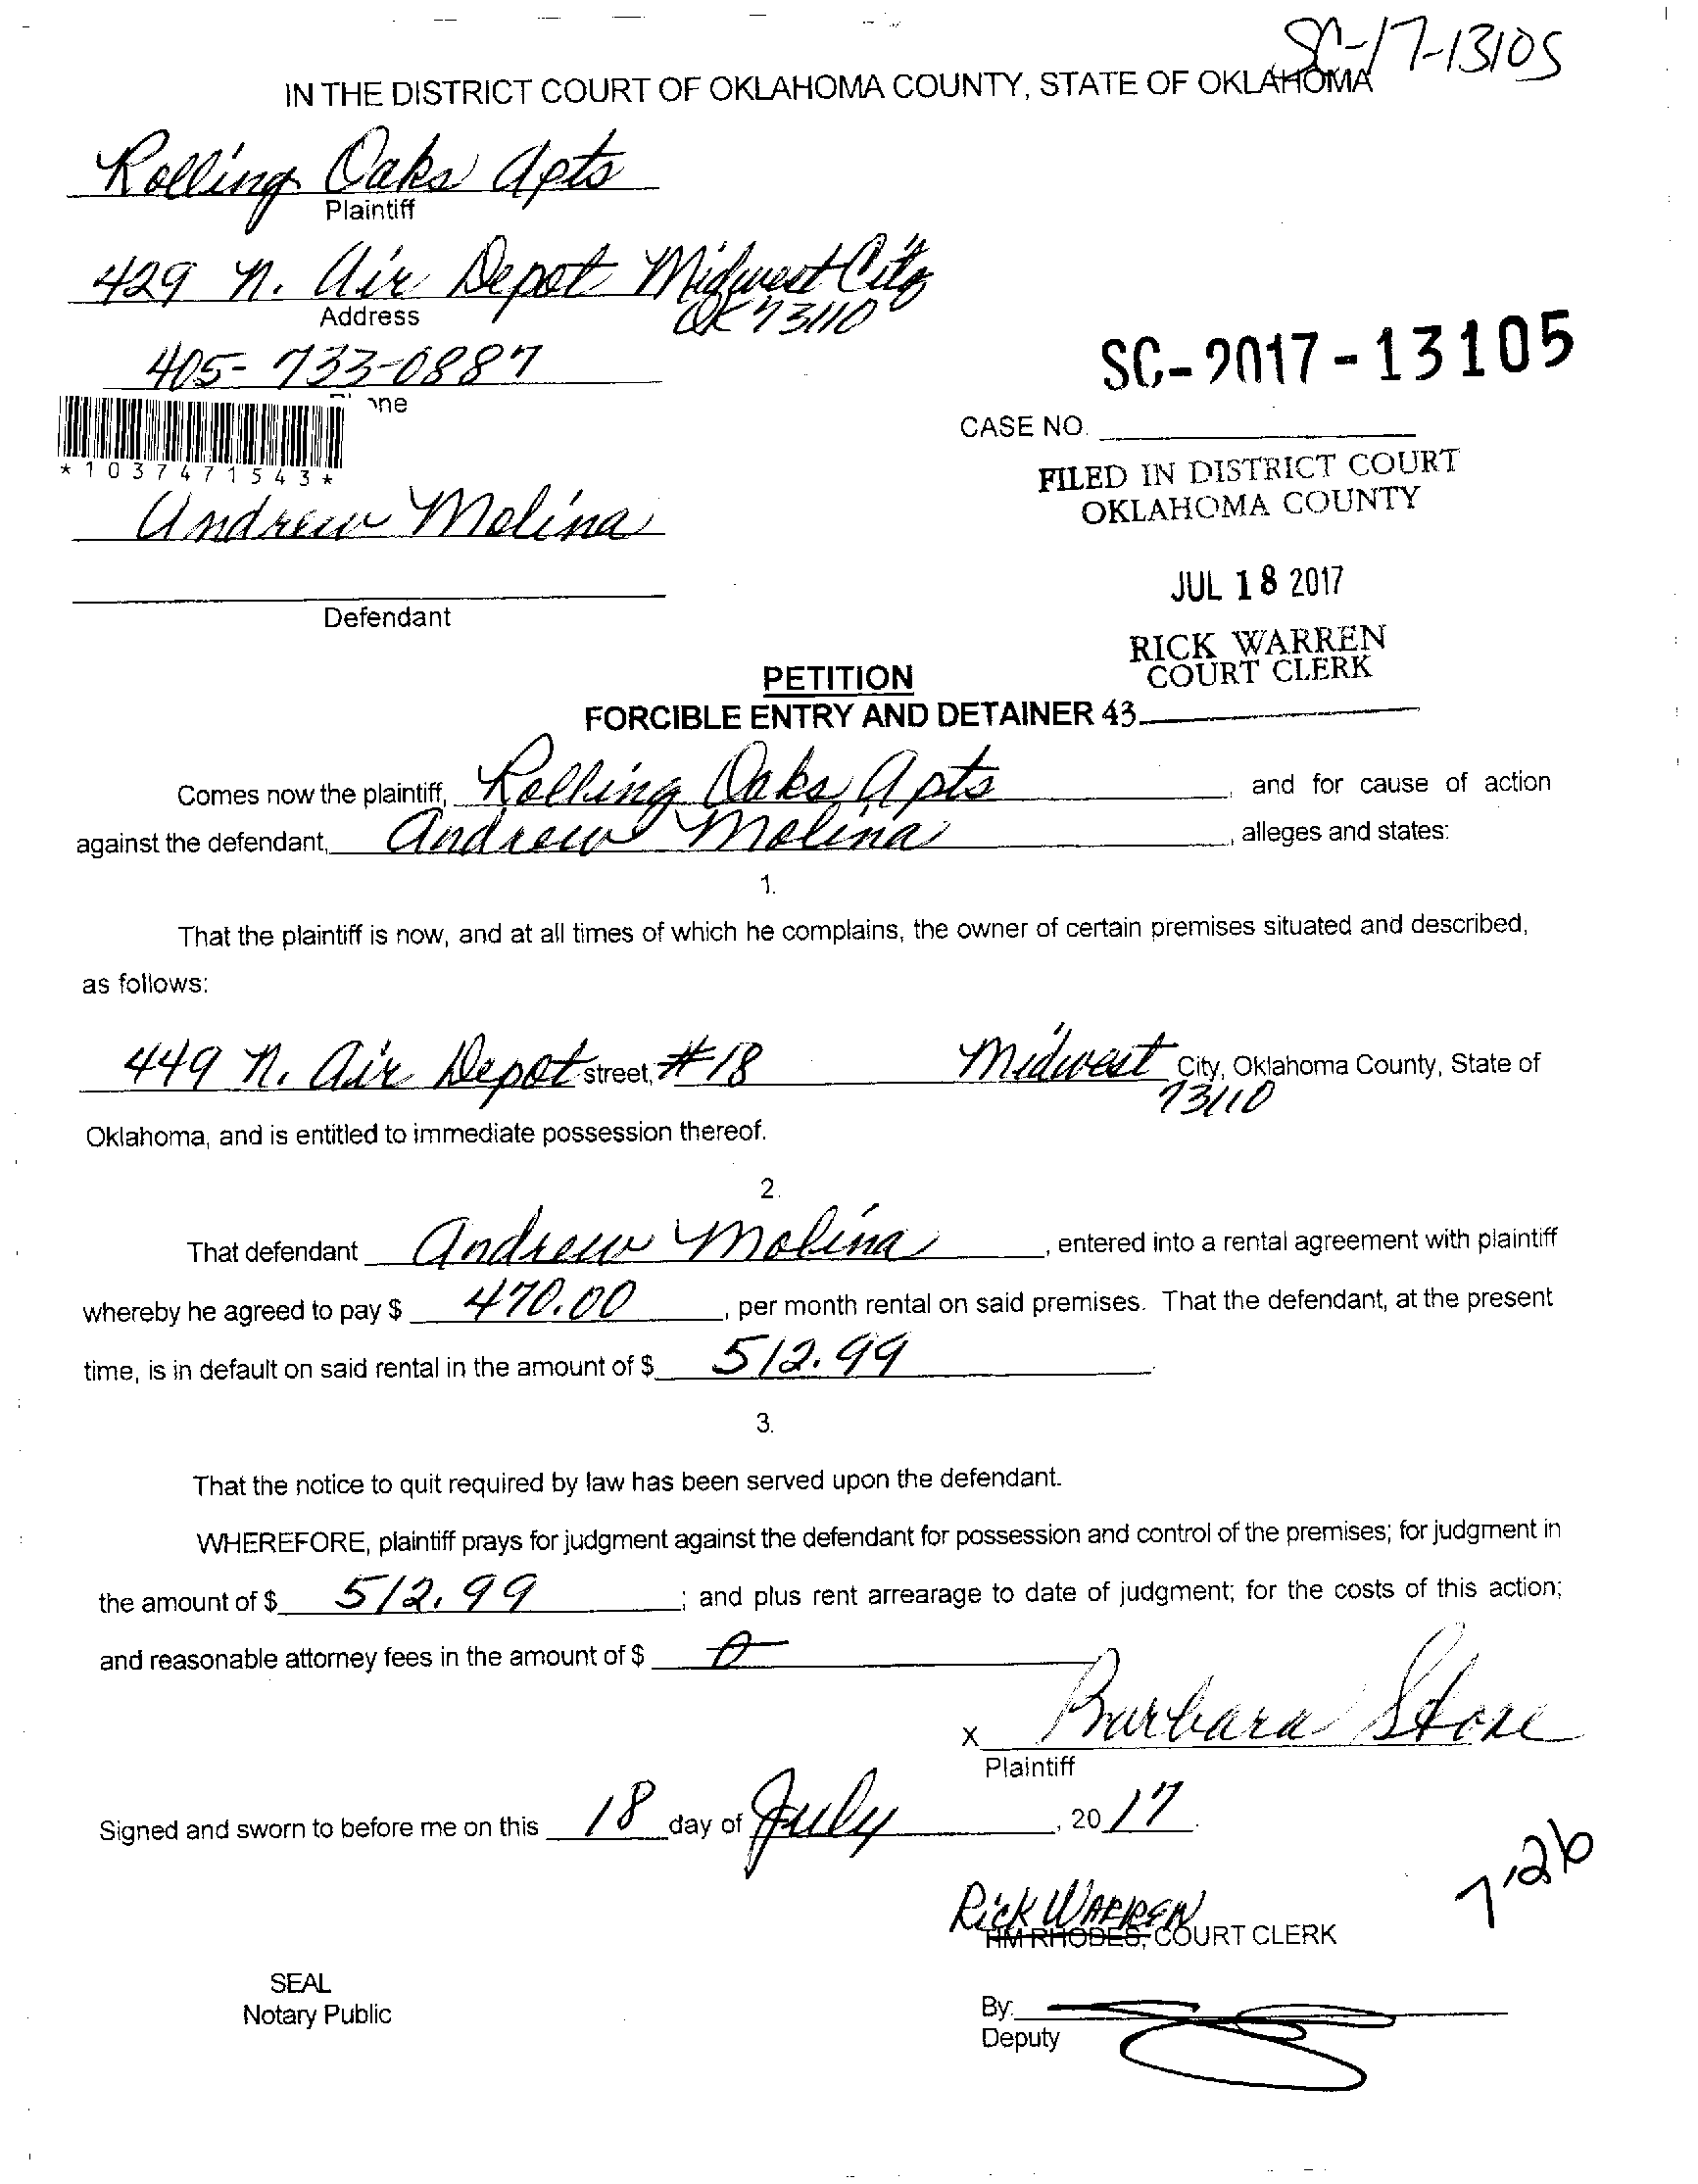 SC-17-13105
IN THE DISTRICT COURT OF OKLAHOMA COUNTY, STATE OF OKLAHOMA
Rolling Oaks Apts
Plaintiff
429 N. Air Depot Midwest City
OK 73110
Address
405-733-0887
SC-2017-13105
CASE NO.
*1037471543*
FILED IN DISTRICT COURT
OKLAHOMA COUNTY
Andrew Molina
JUL 18 2017
Defendant
RICK WARREN
COURT CLERK
PETITION
FORCIBLE ENTRY AND DETAINER 43
Comes now the plaintiff, Rolling Oaks Apts, and for cause of action
against the defendant, Andrew Molina, alleges and states:
1.
That the plaintiff is now, and at all times of which he complains, the owner of certain premises situated and described,
as follows:
449 N. Air Depot street, #18 Midwest City, Oklahoma County, State of
73110
Oklahoma, and is entitled to immediate possession thereof.
2.
That defendant Andrew Molina, entered into a rental agreement with plaintiff
whereby he agreed to pay $ 470.00, per month rental on said premises. That the defendant, at the present
time, is in default on said rental in the amount of $ 512.99.
3.
That the notice to quit required by law has been served upon the defendant.
WHEREFORE, plaintiff prays for judgment against the defendant for possession and control of the premises; for judgment in
the amount of $ 512.99; and plus rent arrearage to date of judgment; for the costs of this action;
and reasonable attorney fees in the amount of $ 0
X Barbara Stone
Plaintiff
Signed and sworn to before me on this 18 day of July, 2017.
7-26
Rick Warren
RHODES, COURT CLERK
SEAL
Notary Public
By:
Deputy